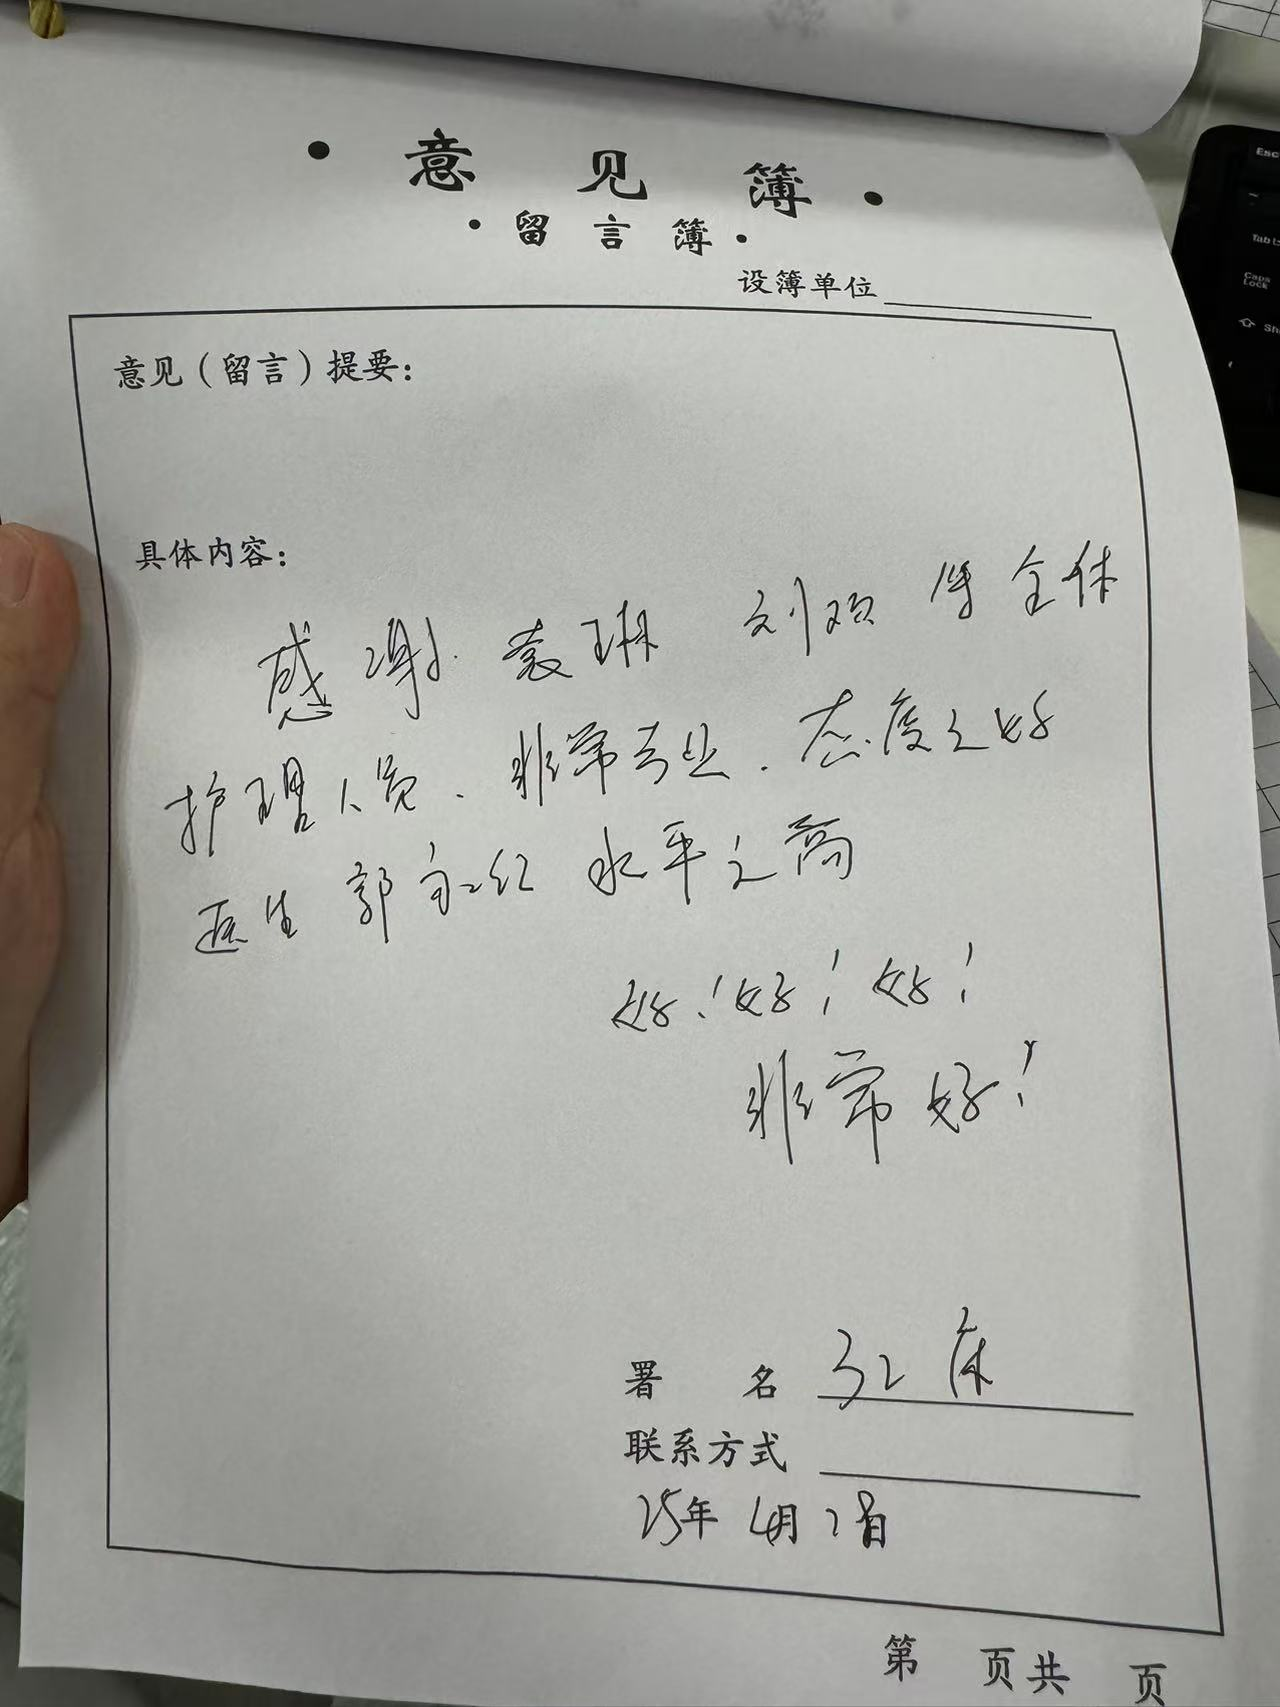 · 意 见 簿 ·
· 留 言 簿 ·
设簿单位
意见（留言）提要：
具体内容：
感谢 袁琳 刘颖 等 全体
护理人员. 非常专业. 态度之好
医生 郭永红 水平之高
好！好！好！
非常好！
署 名 32床
联系方式
25年 4月 28日
第 页共 页
Esc
Tab
Caps Lock